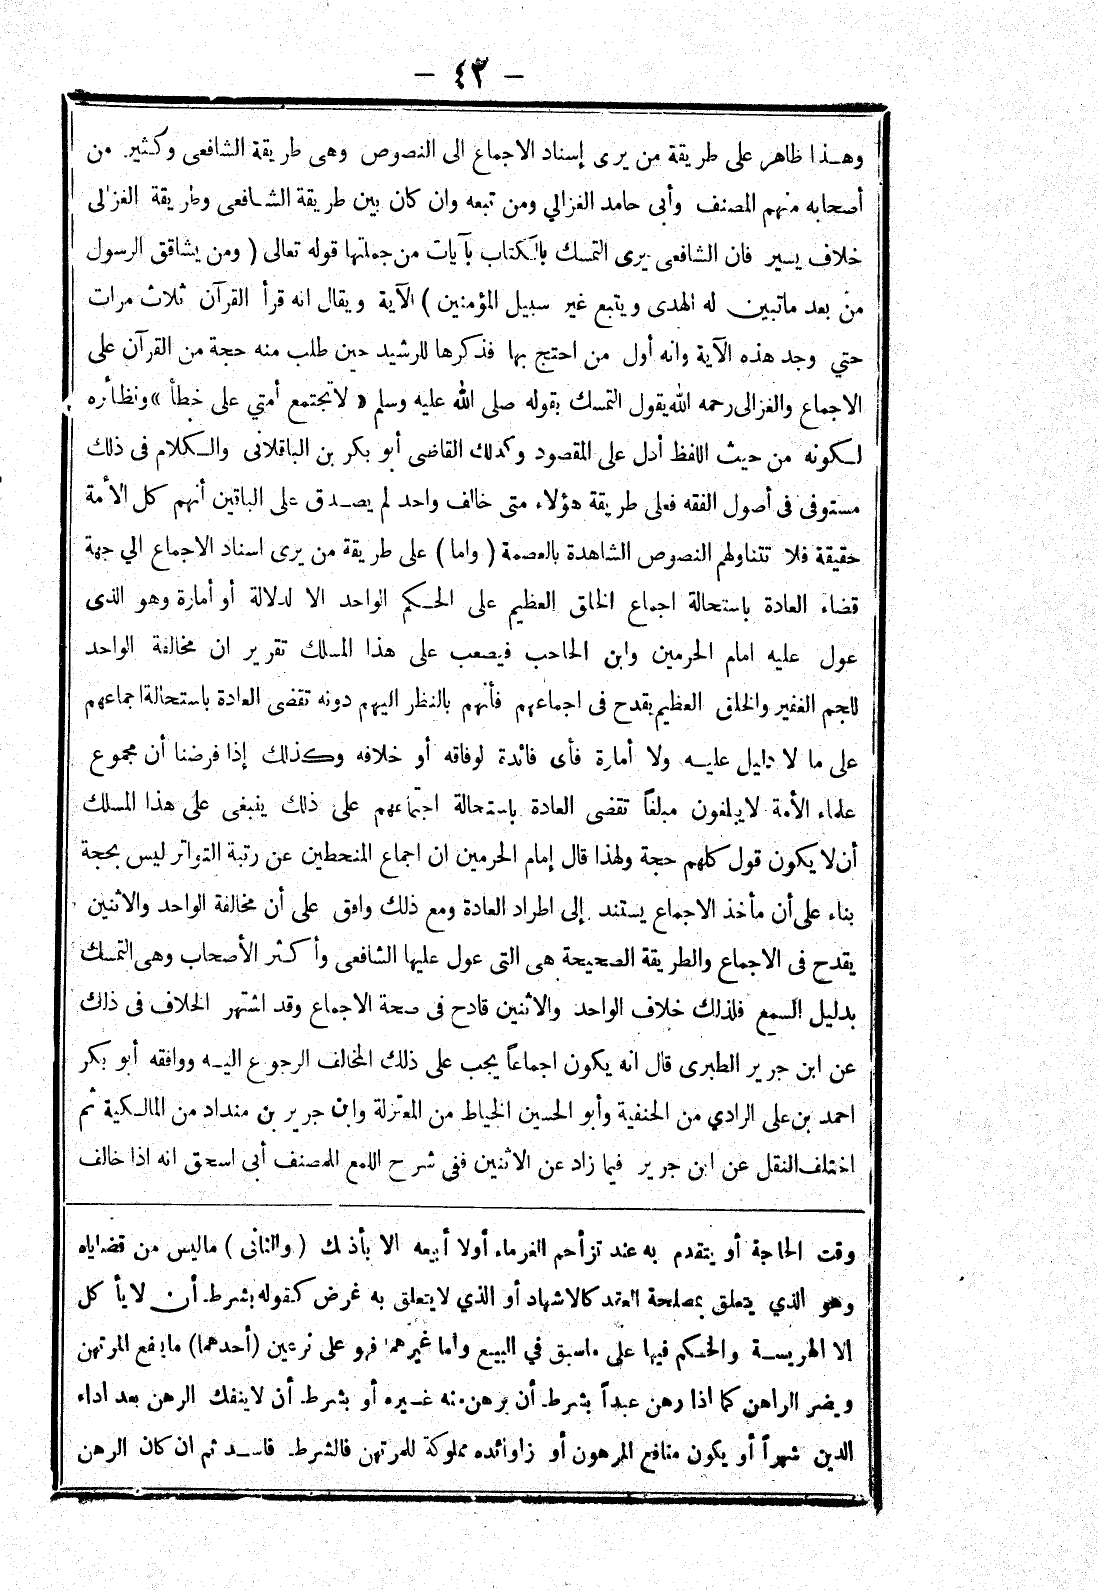 - ٤٣ -
وهذا ظاهر على طريقة من يرى إسناد الاجماع الى النصوص وهى طريقة الشافعى وكثير من
أصحابه منهم المصنف وأبى حامد الغزالي ومن تبعه وان كان بين طريقة الشافعى وطريقة الغزالى
خلاف يسير فان الشافعى يرى التمسك بالكتاب بآيات من جملتها قوله تعالى ( ومن يشاقق الرسول
من بعد ماتبين له الهدى ويتبع غير سبيل المؤمنين ) الآية ويقال انه قرأ القرآن ثلاث مرات
حتي وجد هذه الآية وانه أول من احتج بها فذكرها للرشيد حين طلب منه حجة من القرآن على
الاجماع والغزالى رحمه الله يقول التمسك بقوله صلى الله عليه وسلم « لاتجتمع أمتي على خطأ » ونظائره
لكونه من حيث اللفظ أدل على المقصود وكذلك القاضى أبو بكر بن الباقلانى والكلام فى ذلك
مستوفى فى أصول الفقه فعلى طريقة هؤلاء متى خالف واحد لم يصدق على الباقين أنهم كل الأمة
حقيقة فلا تتناولهم النصوص الشاهدة بالعصمة ( واما ) على طريقة من يرى اسناد الاجماع الي جهة
قضاء العادة باستحالة اجماع الخلق العظيم على الحكم الواحد الا لدلالة أو أمارة وهو الذى
عول عليه امام الحرمين وابن الحاجب فيصعب على هذا المسلك تقرير ان مخالفة الواحد
للجم الغفير والخلق العظيم يقدح فى اجماعهم فأنهم بالنظر اليهم دونه تقضى العادة باستحالة اجماعهم
على ما لا دليل عليه ولا أمارة فأى فائدة لوفاقه أو خلافه وكذلك إذا فرضنا أن مجموع
علماء الأمة لايبلغون مبلغاً تقضى العادة باستحالة اجتماعهم على ذلك ينبغى على هذا المسلك
أن لا يكون قول كلهم حجة ولهذا قال إمام الحرمين ان اجماع المنحطين عن رتبة التواتر ليس بحجة
بناء على أن مأخذ الاجماع يستند إلى اطراد العادة ومع ذلك وافق على أن مخالفة الواحد والاثنين
يقدح فى الاجماع والطريقة الصحيحة هى التى عول عليها الشافعى وأكثر الأصحاب وهى التمسك
بدليل السمع فلذلك خلاف الواحد والاثنين قادح فى صحة الاجماع وقد اشتهر الخلاف فى ذلك
عن ابن جرير الطبرى قال انه يكون اجماعاً يجب على ذلك المخالف الرجوع اليه ووافقه أبو بكر
احمد بن على الرادي من الحنفية وأبو الحسين الخياط من المعتزلة وابن جرير بن منداد من المالكية ثم
اختلف النقل عن ابن جرير فيما زاد عن الاثنين ففى شرح اللمع للمصنف أبى اسحق انه اذا خالف
وقت الحاجة أو يتقدم به عند تزأحم الغرماء أولا أبيعه الا بأذنك ( والثانى ) ماليس من قضاياه
وهو الذي يتعلق بمصلحة العقد كالاشهاد أو الذي لايتعلق به غرض كقوله بشرط أن لا يأكل
الا الهريسة والحكم فيها على ماسبق في البيع واما غيرهما فهو على نوعين (أحدهما) ماينفع المرتهن
ويضر الراهن كما اذا رهن عبداً بشرط أن يرهن منه غيره أو بشرط أن لاينفك الرهن بعد اداء
الدين شهراً أو يكون منافع المرهون أو زاوئده مملوكة للمرتهن فالشرط فاسد ثم ان كان الرهن